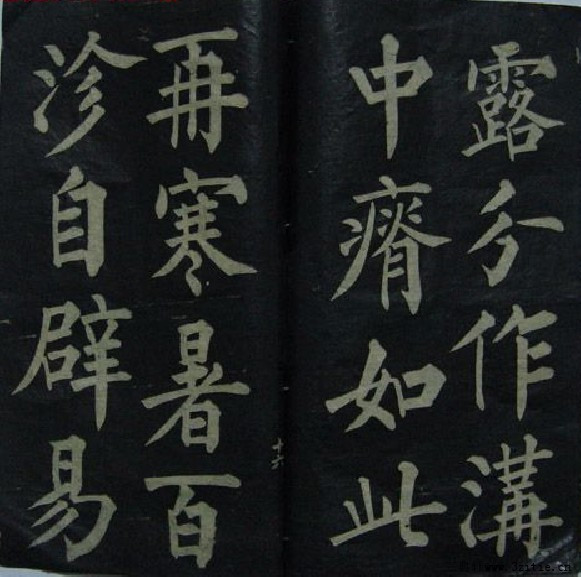 露分作溝
中瘠如此
再寒暑百
沴自辟易
十六